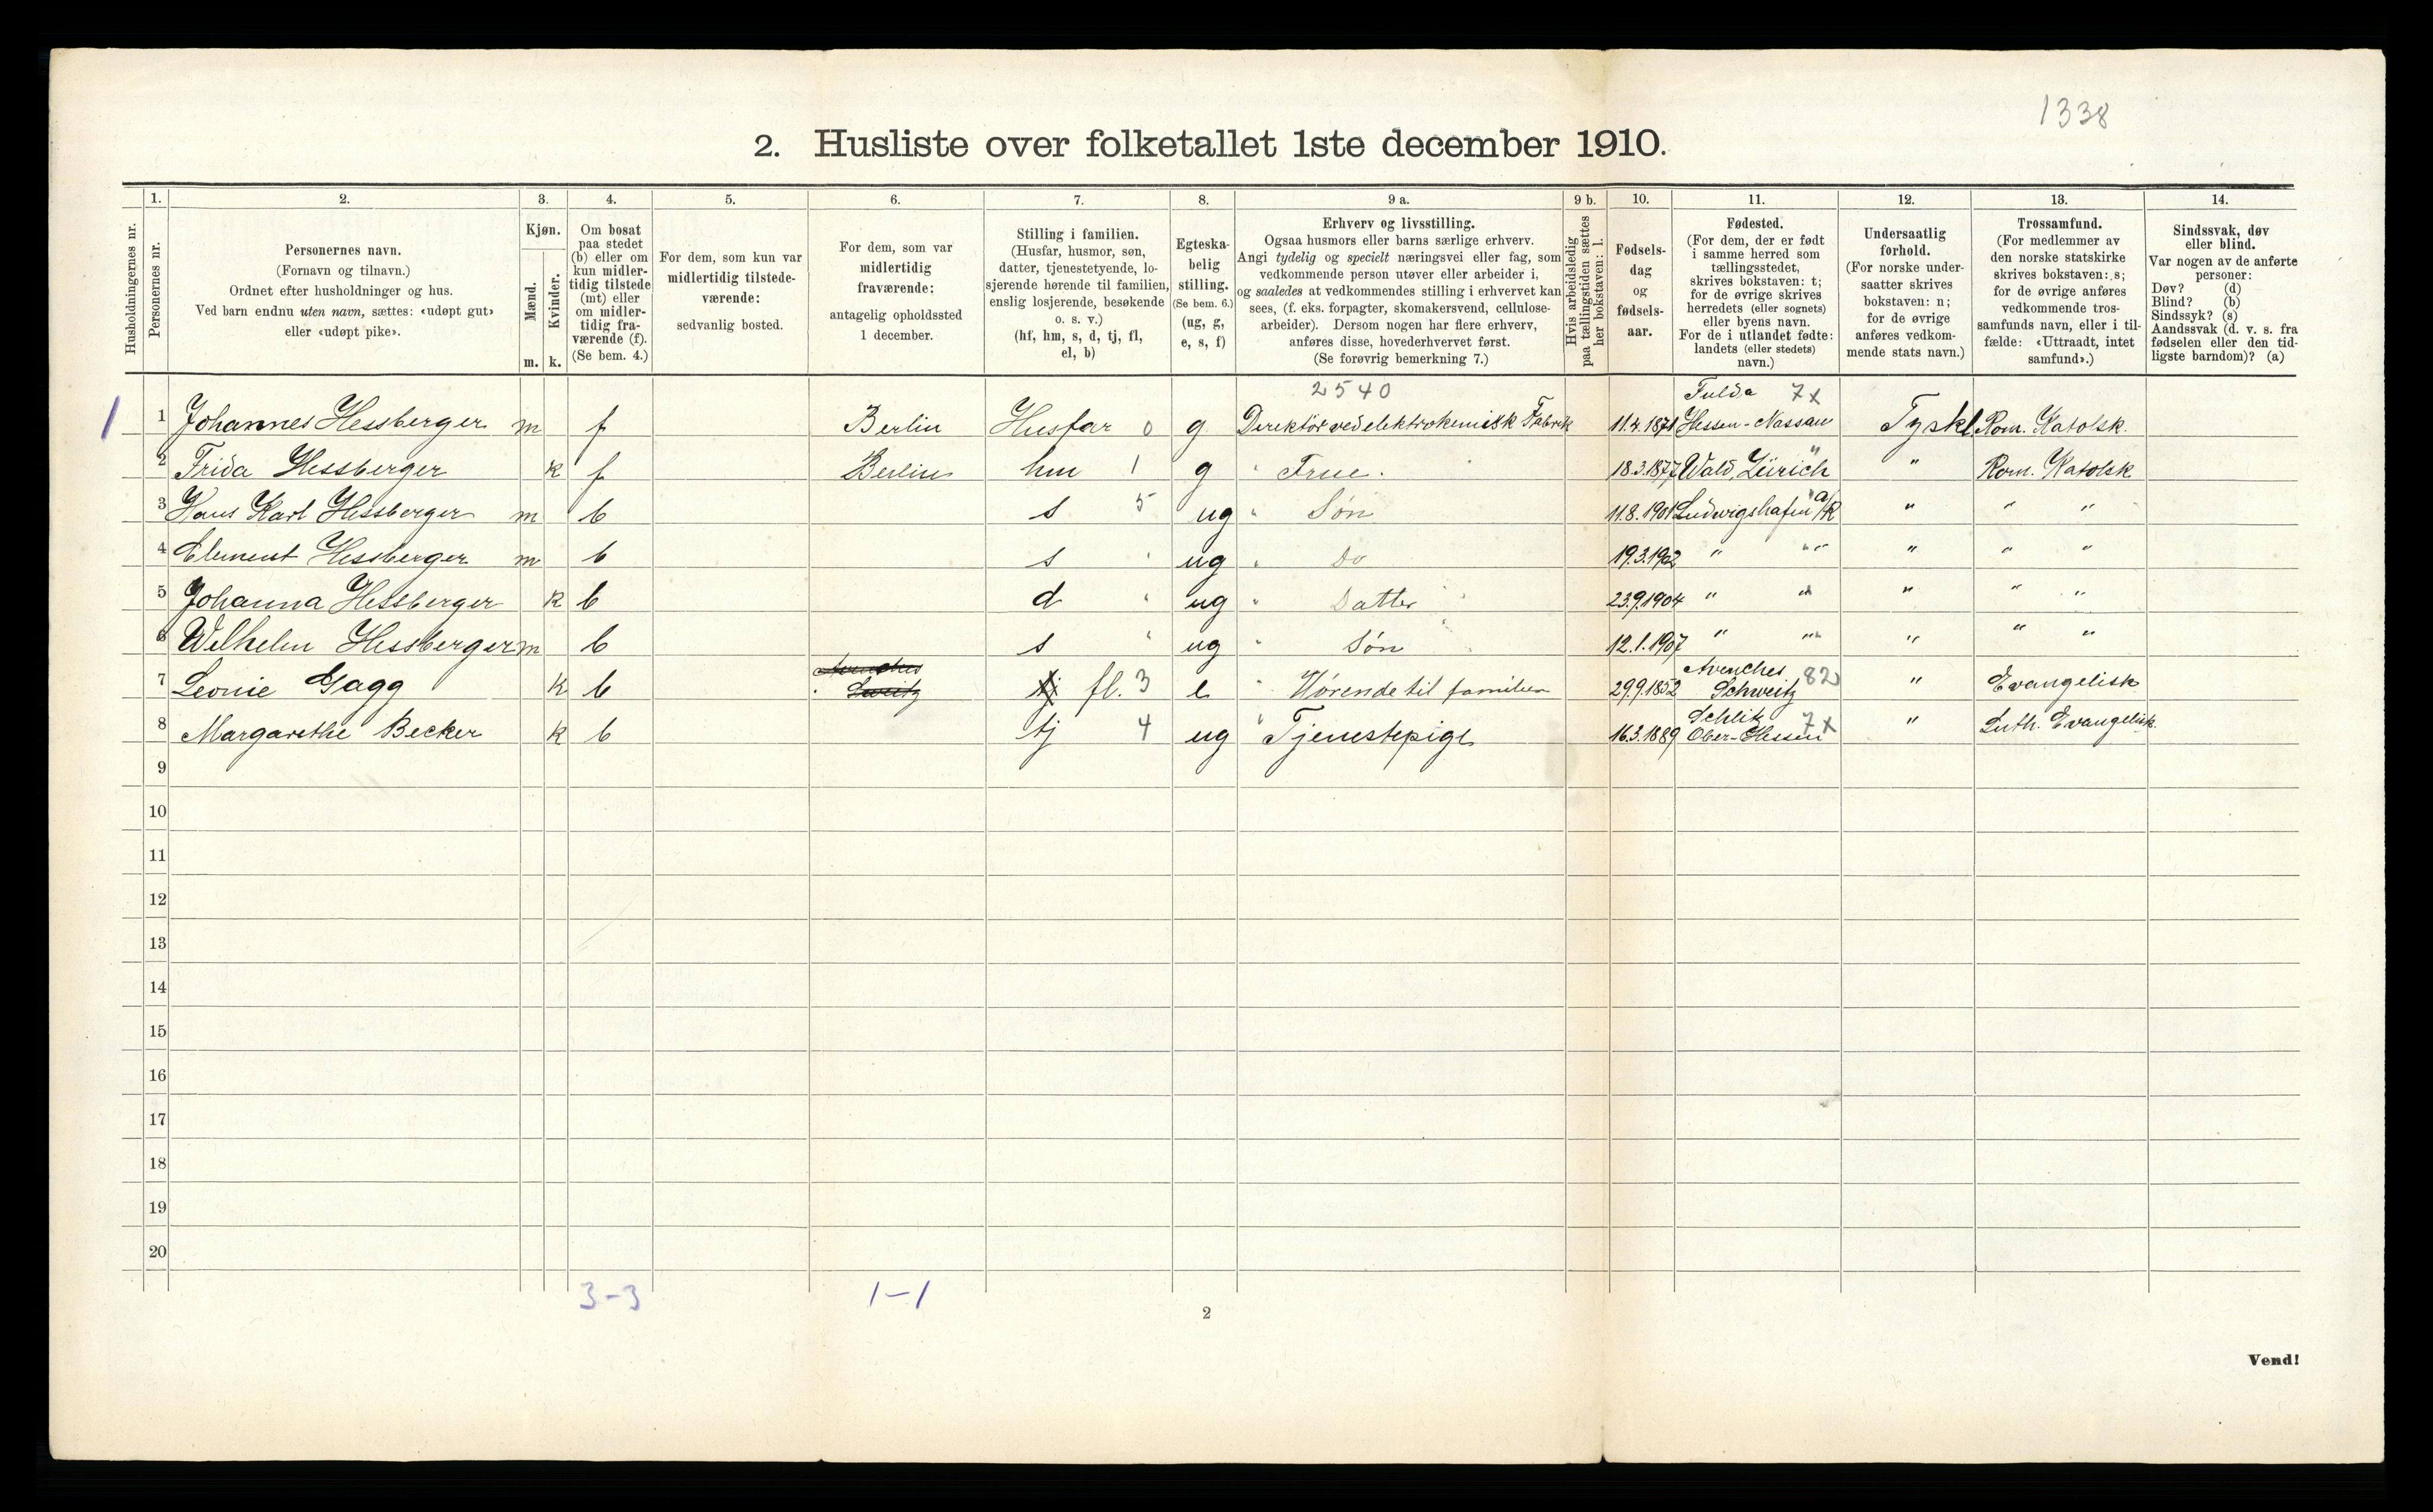 1338
2. Husliste over folketallet 1ste december 1910.
Husholdningernes nr.
1.
Personernes nr.
2.
Personernes navn.
(Fornavn og tilnavn.)
Ordnet efter husholdninger og hus.
Ved barn endnu uten navn, sættes: «udøpt gut»
eller «udøpt pike».
3.
Kjøn.
Mænd.
Kvinder.
m. k.
4.
Om bosat
paa stedet
(b) eller om
kun midler-
tidig tilstede
(mt) eller
om midler-
tidig fra-
værende (f).
(Se bem. 4.)
5.
For dem, som kun var
midlertidig tilstede-
værende:
sedvanlig bosted.
6.
For dem, som var
midlertidig
fraværende:
antagelig opholdssted
1 december.
7.
Stilling i familien.
(Husfar, husmor, søn,
datter, tjenestetyende, lo-
sjerende hørende til familien,
enslig losjerende, besøkende
o. s. v.)
(hf, hm, s, d, tj, fl,
el, b)
8.
Egteska-
belig
stilling.
(Se bem. 6.)
(ug, g,
e, s, f)
9 a.
Erhverv og livsstilling.
Ogsaa husmors eller barns særlige erhverv.
Angi tydelig og specielt næringsvei eller fag, som
vedkommende person utøver eller arbeider i,
og saaledes at vedkommendes stilling i erhvervet kan
sees, (f. eks. forpagter, skomakersvend, cellulose-
arbeider). Dersom nogen har flere erhverv,
anføres disse, hovederhvervet først.
(Se forøvrig bemerkning 7.)
9 b.
Hvis arbeidsledig
paa tællingstiden sættes
her bokstaven: l.
10.
Fødsels-
dag
og
fødsels-
aar.
11.
Fødested.
(For dem, der er født
i samme herred som
tællingsstedet,
skrives bokstaven: t;
for de øvrige skrives
herredets (eller sognets)
eller byens navn.
For de i utlandet fødte:
landets (eller stedets)
navn.)
12.
Undersaatlig
forhold.
(For norske under-
saatter skrives
bokstaven: n;
for de øvrige
anføres vedkom-
mende stats navn.)
13.
Trossamfund.
(For medlemmer av
den norske statskirke
skrives bokstaven: s;
for de øvrige anføres
vedkommende tros-
samfunds navn, eller i til-
fælde: «Uttraadt, intet
samfund».)
14.
Sindssvak, døv
eller blind.
Var nogen av de anførte
personer:
Døv? (d)
Blind? (b)
Sindssyk? (s)
Aandssvak (d. v. s. fra
fødselen eller den tid-
ligste barndom)? (a)
2540 Fulda 7x
1 1 Johannes Hessberger m f Berlin Husfar 0 g Direktör ved elektrokemisk Fabrik 11.4.1871 Hessen-Nassau Tyskl. Rom. Katolsk.
2 Frida Hessberger k f Berlin hm 1 g " Frue. 18.3.1877 Wald, Zürich " Rom. Katolsk
3 Hans Karl Hessberger m b s 5 ug " Søn 11.8.1901 Ludwigshafen a/R " " "
4 Clement Hessberger m b s " ug " Do 19.3.1902 " " " " "
5 Johanna Hessberger k b d " ug " Datter 23.9.1904 " " " " "
6 Wilhelm Hessberger m b s " ug " Søn 12.1.1907 " " " " "
Avenches Avenches
7 Leonie Gagg k b Sveitz tj fl. 3 e " Hørende til familien 29.9.1852 Schweitz 82 " Evangelisk
Schlitz 7x
8 Margarethe Becker k b tj 4 ug " Tjenestepige 16.3.1889 Ober-Hessen " Luth. Evangelisk
9
10
11
12
13
14
15
16
17
18
19
20
3-3 1-1
2
Vend!